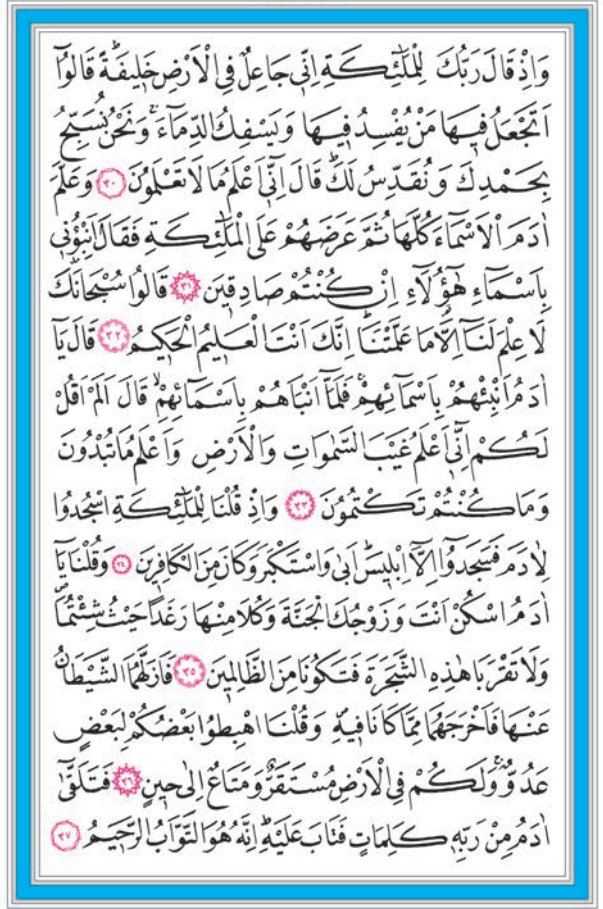 وَاِذْ قَالَ رَبُّكَ لِلْمَلٰٓئِكَةِ اِنّ۪ي جَاعِلٌ فِي الْاَرْضِ خَل۪يفَةًۜ قَالُٓوا
اَتَجْعَلُ ف۪يهَا مَنْ يُفْسِدُ ف۪يهَا وَيَسْفِكُ الدِّمَٓاءَۚ وَنَحْنُ نُسَبِّحُ
بِحَمْدِكَ وَنُقَدِّسُ لَكَۜ قَالَ اِنّ۪ٓي اَعْلَمُ مَا لَا تَعْلَمُونَ ﴿٣٠﴾ وَعَلَّمَ
اٰدَمَ الْاَسْمَٓاءَ كُلَّهَا ثُمَّ عَرَضَهُمْ عَلَى الْمَلٰٓئِكَةِ فَقَالَ اَنْبِؤُ۫ن۪ي
بِاَسْمَٓاءِ هٰٓؤُ۬لَٓاءِ اِنْ كُنْتُمْ صَادِق۪ينَ ﴿٣١﴾ قَالُوا سُبْحَانَكَ
لَا عِلْمَ لَنَٓا اِلَّا مَا عَلَّمْتَنَاۜ اِنَّكَ اَنْتَ الْعَل۪يمُ الْحَك۪يمُ ﴿٣٢﴾ قَالَ يَٓا
اٰدَمُ اَنْبِئْهُمْ بِاَسْمَٓائِهِمْۚ فَلَمَّٓا اَنْبَاَهُمْ بِاَسْمَٓائِهِمْۙ قَالَ اَلَمْ اَقُلْ
لَكُمْ اِنّ۪ٓي اَعْلَمُ غَيْبَ السَّمٰوَاتِ وَالْاَرْضِ وَاَعْلَمُ مَا تُبْدُونَ
وَمَا كُنْتُمْ تَكْتُمُونَ ﴿٣٣﴾ وَاِذْ قُلْنَا لِلْمَلٰٓئِكَةِ اسْجُدُوا
لِاٰدَمَ فَسَجَدُٓوا اِلَّٓا اِبْل۪يسَۜ اَبٰى وَاسْتَكْبَرَ وَكَانَ مِنَ الْكَافِر۪ينَ ﴿٣٤﴾ وَقُلْنَا يَٓا
اٰدَمُ اسْكُنْ اَنْتَ وَزَوْجُكَ الْجَنَّةَ وَكُلَا مِنْهَا رَغَدًا حَيْثُ شِئْتُمَاۖ
وَلَا تَقْرَبَا هٰذِهِ الشَّجَرَةَ فَتَكُونَا مِنَ الظَّالِم۪ينَ ﴿٣٥﴾ فَاَزَلَّهُمَا الشَّيْطَانُ
عَنْهَا فَاَخْرَجَهُمَا مِمَّا كَانَا ف۪يهِۖ وَقُلْنَا اهْبِطُوا بَعْضُكُمْ لِبَعْضٍ
عَدُوٌّۚ وَلَكُمْ فِي الْاَرْضِ مُسْتَقَرٌّ وَمَتَاعٌ اِلٰى ح۪ينٍ ﴿٣٦﴾ فَتَلَقّٰٓى
اٰدَمُ مِنْ رَبِّه۪ كَلِمَاتٍ فَتَابَ عَلَيْهِۜ اِنَّهُ هُوَ التَّوَّابُ الرَّح۪يمُ ﴿٣٧﴾